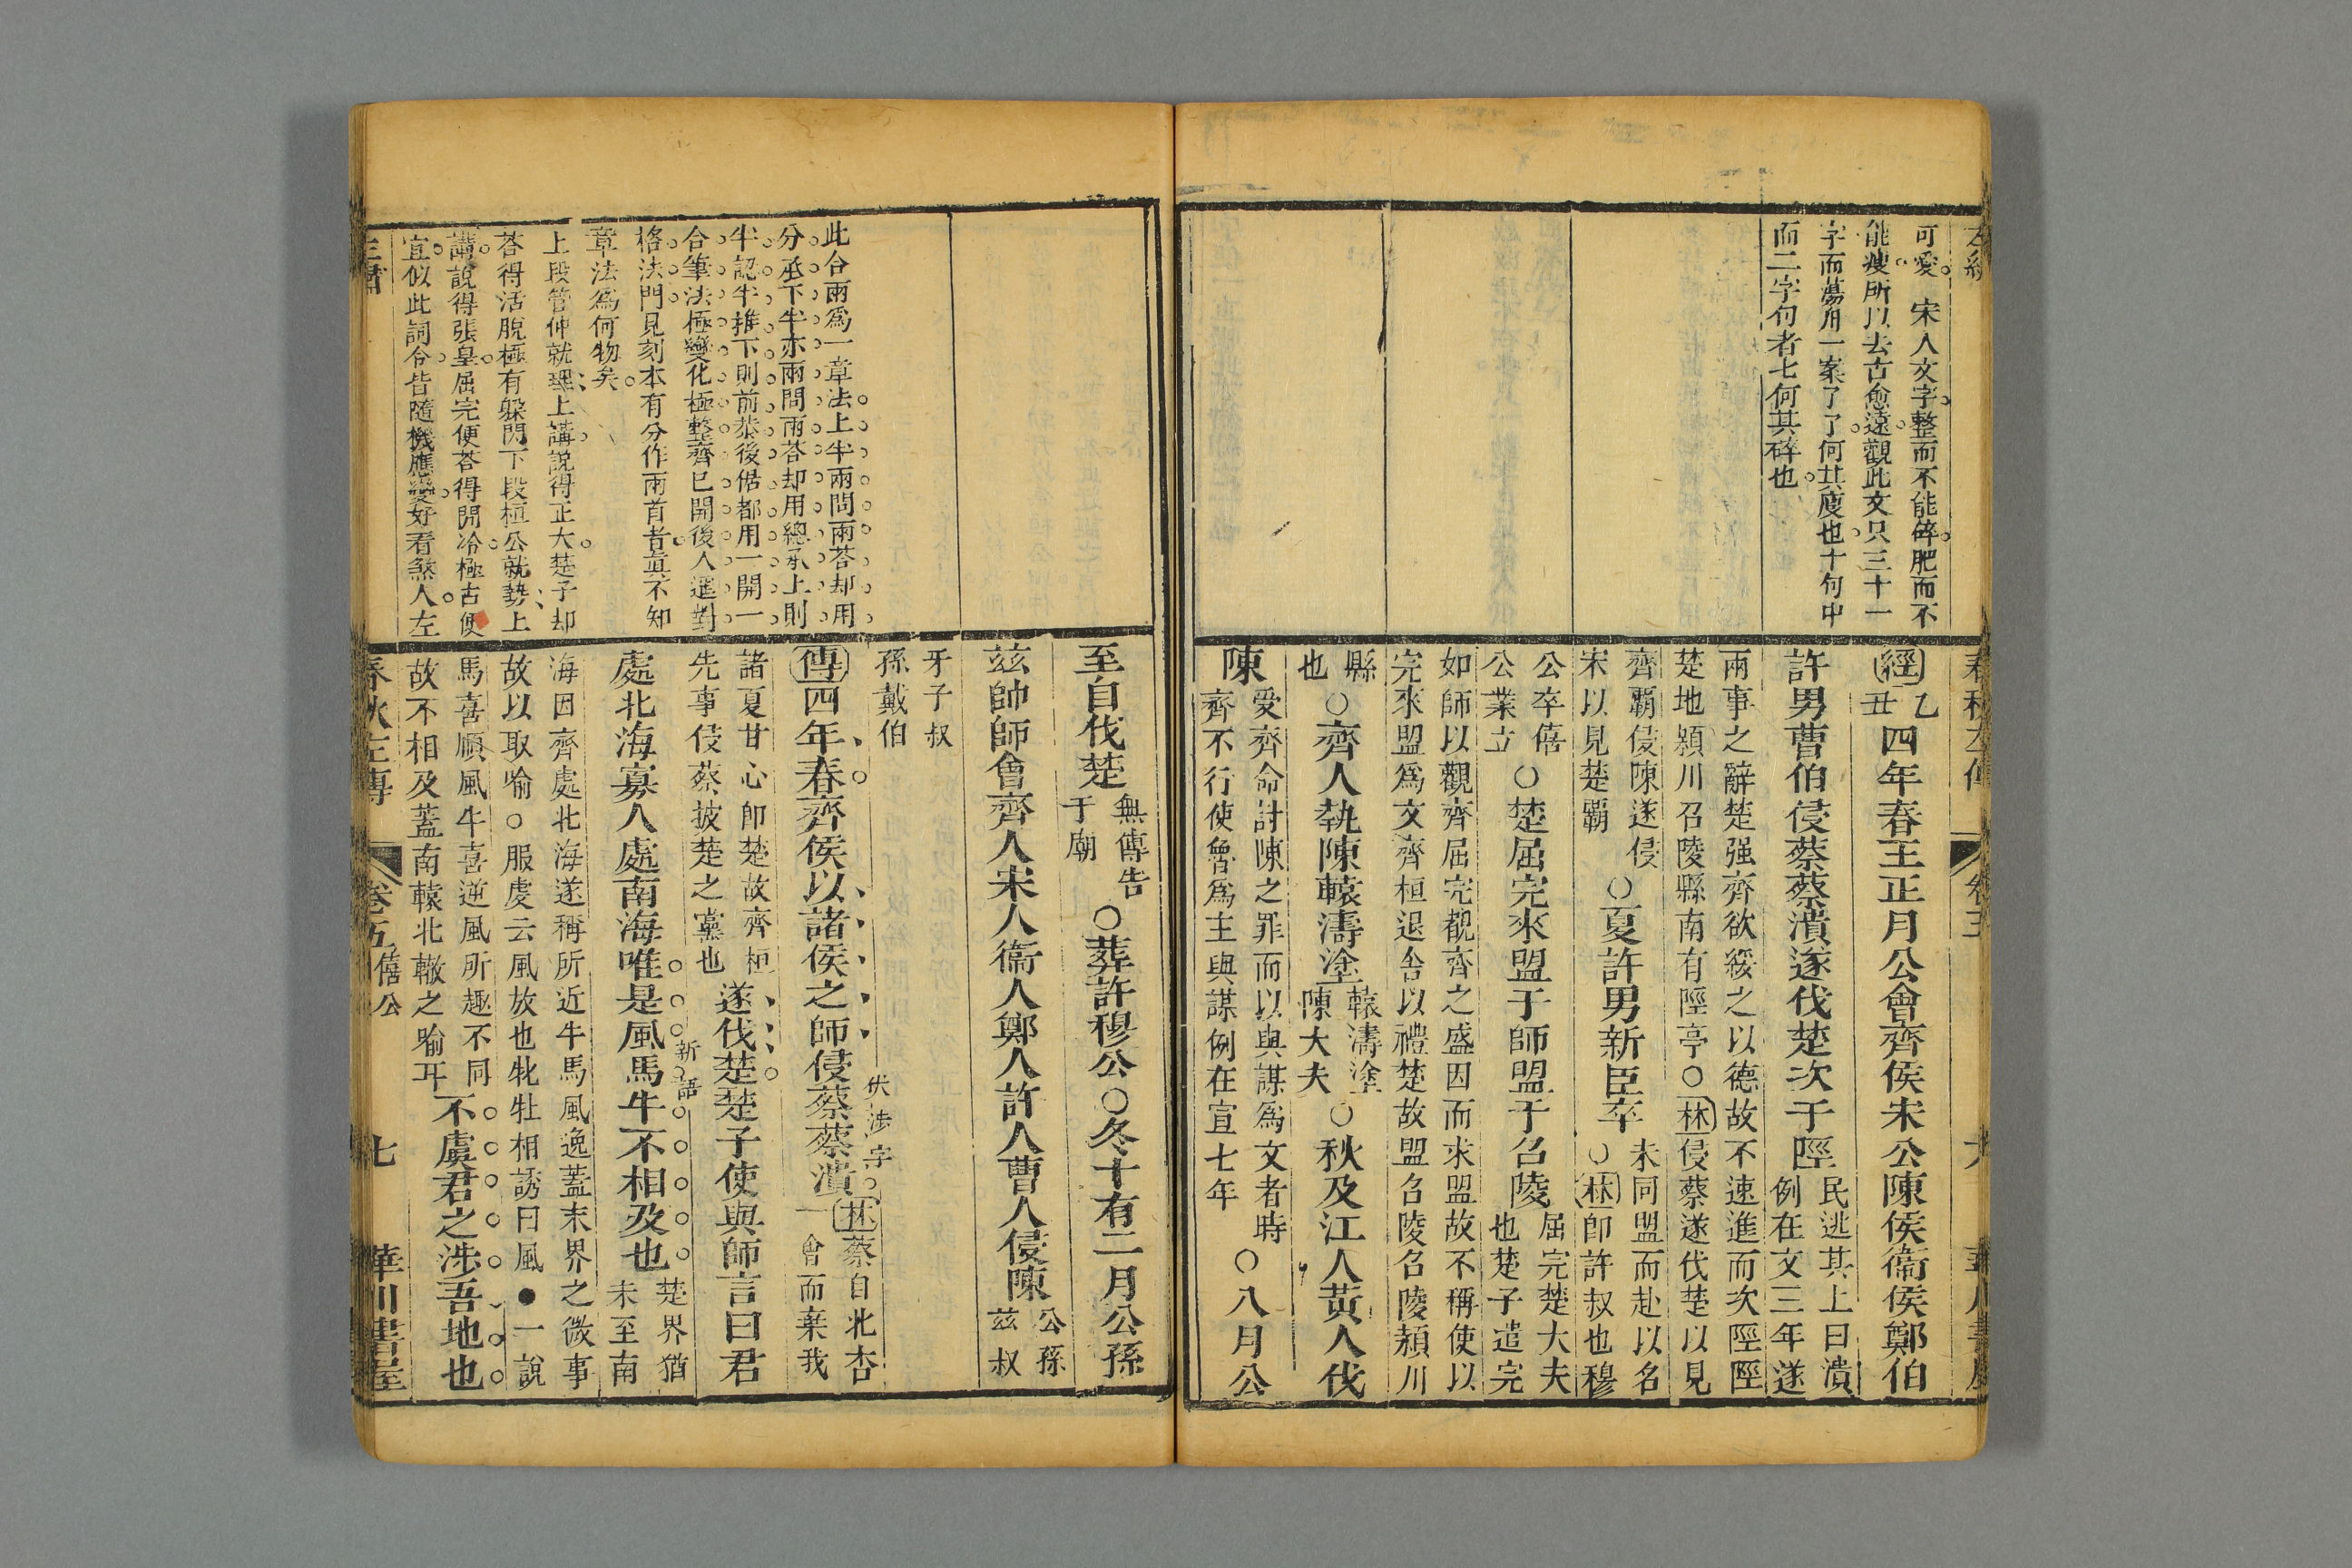 可愛 宋人文字整而不能碎肥而不
能瘦所以去古愈遠觀此文只三十一
字而蕩用一案了了何其廋也十句中
而二字句者七何其碎也
經乙丑四年春王正月公會齊侯宋公陳侯衞侯鄭伯
許男曹伯侵蔡蔡潰遂伐楚次于陘民逃其上曰潰例在文三年遂
兩事之辭楚强齊欲綏之以德故不速進而次陘陘
楚地潁川召陵縣南有陘亭○林侵蔡遂伐楚以見
齊覇侵陳遂侵
宋以見楚覇
○夏許男新臣卒未同盟而赴以名○林卽許叔也穆
公卒僖
公業立
○楚屈完來盟于師盟于召陵屈完楚大夫也楚子遣完
如師以觀齊屈完覩齊之盛因而求盟故不稱使以
完來盟爲文齊桓退舍以禮楚故盟召陵召陵潁川
縣
也
○齊人執陳轅濤塗轅濤塗陳大夫○秋及江人黃人伐
陳愛齊命討陳之罪而以與謀爲文者時齊不行使魯爲主與謀例在宣七年○八月公
春秋左傳
六
此合兩爲一章法上半兩問兩荅却用
分承下半亦兩問兩荅却用總承上則
半認半推下則前恭後倨都用一開一
合筆法極變化極整齊已開後人選對
格法門見刻本有分作兩首者眞不知
章法爲何物矣
上段管仲就理上講說得正大楚子却
荅得活脫極有躱閃下段桓公就勢上
講說得張皇屈完便荅得閒冷極古便
宜似此詞令皆隨機應變好看煞人左
至自伐楚無傳告于廟○葬許穆公○冬十有二月公孫
茲帥師會齊人宋人衞人鄭人許人曹人侵陳公孫茲叔
牙子叔
孫戴伯
傳四年春齊侯以諸侯之師侵蔡蔡潰林蔡自北杏一會而棄我
伏涉字
諸夏甘心卽楚故齊桓
先事侵蔡披楚之黨也
遂伐楚楚子使與師言曰君
處北海寡人處南海唯是風馬牛不相及也楚界猶未至南
新語
海因齊處北海遂稱所近牛馬風逸蓋末界之微事
故以取喻○服虔云風放也牝牡相誘曰風●一說
馬喜順風牛喜逆風所趣不同
故不相及蓋南轅北轍之喻耳
不虞君之涉吾地也
春秋左傳
卷五僖公
七
華川書屋